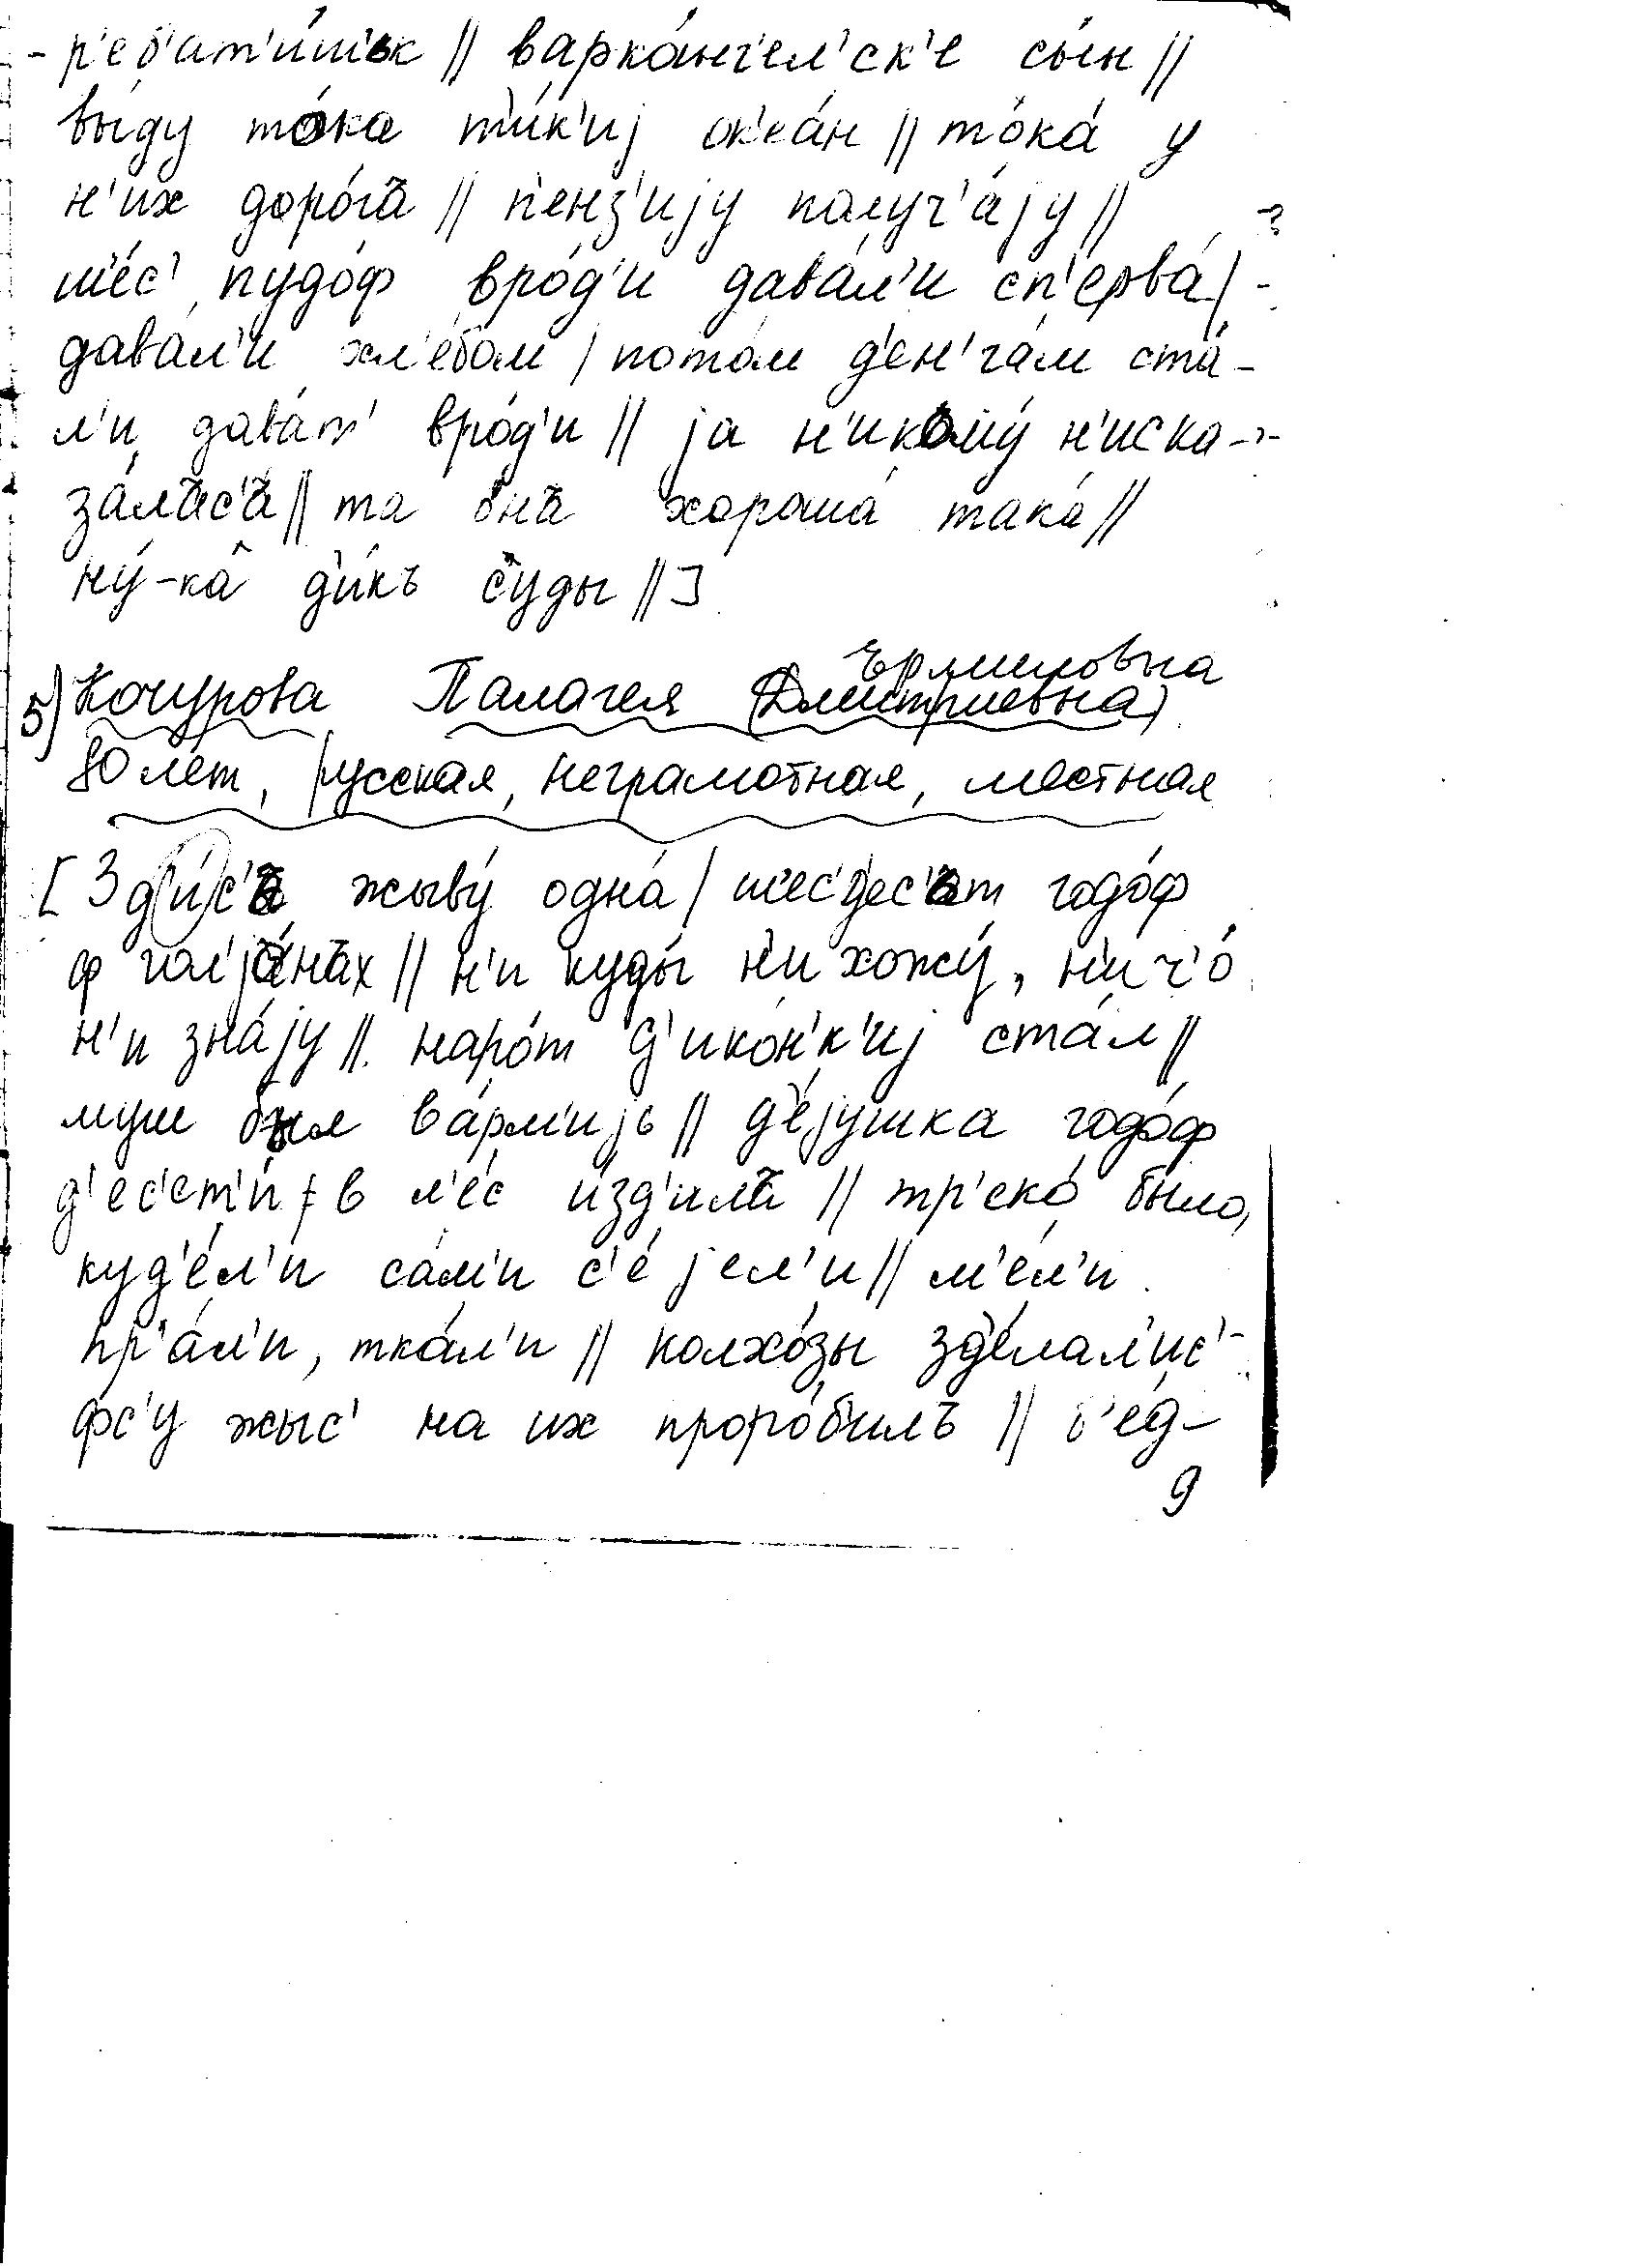 - р'еб'ат'и́шък // варка́нг'ел'ск'е сы́н //
вы́ду то́ка т'и́к'иј ок'еа́н // то́ка́ у
н'их доро́га // п'енз'ију палуч'а́ју //
ше́с' пудо́ф вро́д'и дава́л'и сп'ерва́/-
дава́л'и хл'е́бом / пото́м д'ен'га́м ста́-
л'и дава́т' вро́д'и // ја н'икому́ н'иска-
за́лас'а // та она хороша́ така́ //
ну́-ка д'и́къ с'уды //]
Ермиловна
5) Кочурова Палагея (Дмитриевна)
80 лет, русская, неграмотная, местная
[Зд'и́с'ъ жыву́ одна́ / шес'д'ес'ат годо́ф
ф гол'ја́нах // н'и куды́ н'и хожу́, н'ич'о́
н'и зна́ју // наро́т д'ико́н'к'иј ста́л //
муш был ва́рм'ијь // д'е́јушка годо́ф
д'ес'ет'и́ в л'е́с и́зд'ила // тр'еско́ бы́ло,
куд'е́л'и са́м'и с'е́јел'и // м'е́л'и
пр'а́л'и, тка́л'и // колхо́зы зд'е́лал'ис'-
фс'у жыс' на их проро́б'илъ // б'е́д-
9